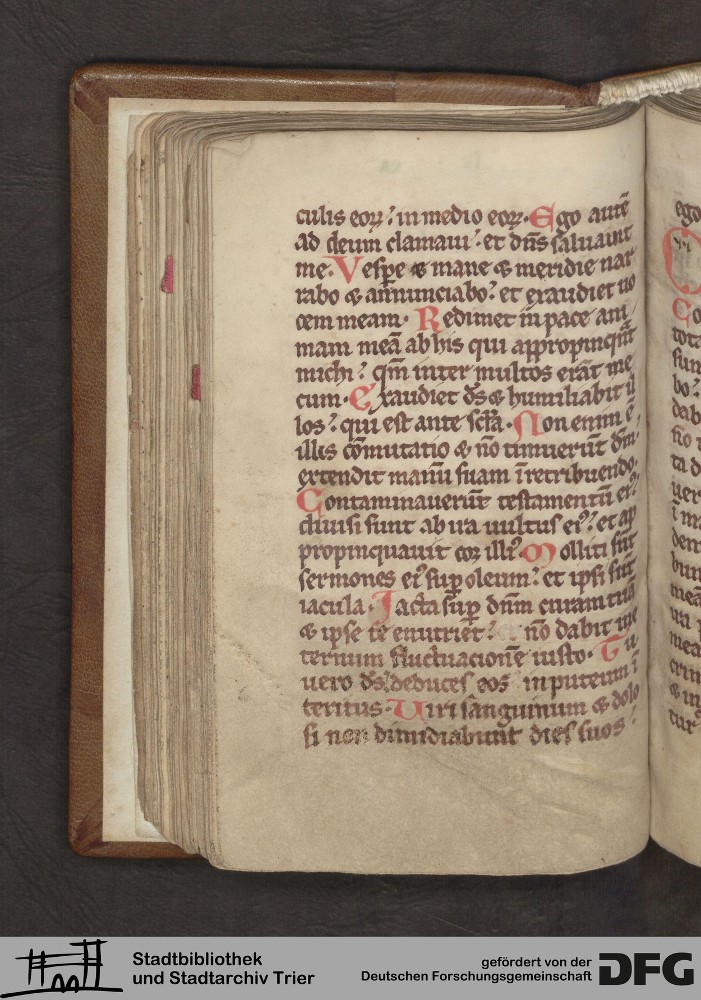 culis eoꝝ: in medio eoꝝ. Ego autē
ad deum clamaui: et dn̄s saluauit
me. Vespe & mane & meridie nar
rabo & an̄nunciabo: et exaudiet uo
cem meam. Redimet in pace ani
mam meā ab his qui appropinquāt
michi: qm̄ inter multos erāt me
cum. Exaudiet ds̄ & humiliabit il
los: qui est ante scl̄a. Non enim ē
illis cōmutatio & nō timuerūt dm̄.
extendit manū suam ī retribuendo.
Contaminauerūt testamentū eiꝰ:
diuisi sunt ab ira uultus eiꝰ: et ap
propinquauit cor illiꝰ. Molliti sūt
sermones eiꝰ sup oleum: et ipsi sūt
iacula. Iacta sup̄ dn̄m curam tuā
& ipse te enutriet: nō dabit ine
ternum fluctuacionē iusto. Tu
uero ds̄: deduces eos in puteum ī
teritus. Viri sanguinum & dolo
si non dimidiabunt dies suos:
ego
Co
tota
sun
bo:
dab
nō
ta d
uer
ī m
den
bun
meā
ua
mea
crin
& in
tur
Stadtbibliothek
und Stadtarchiv Trier
gefördert von der
Deutschen Forschungsgemeinschaft
DFG